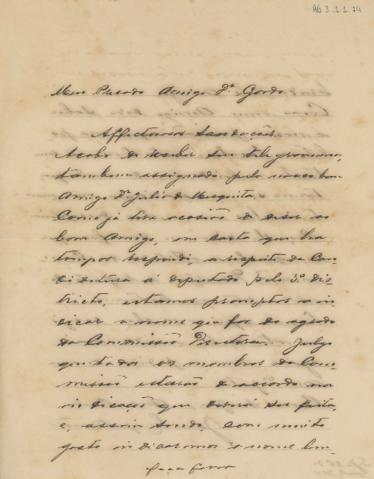 AG 3.1.1.74
Meu Presado Amigo Dr. Gordo
Affectuosas saudações.
Acabo de receber seu telegramma,
tambem assignado pelo nosso bom
Amigo Dr. Julio de Mesquita.
Como já tive occasião de dizer ao
bom Amigo, em carta que ha
tempos respondi, a respeito da Can-
didatura á deputado pelo 3º dis-
tricto, estamos promptos a in-
dicar o nome que for do agrado
da Commissão Directora. Julgo
que todos os membros da Com-
missão estarão de accordo na
indicação que deverá ser feita,
e, assim sendo, com muito
gosto indicaremos o nome